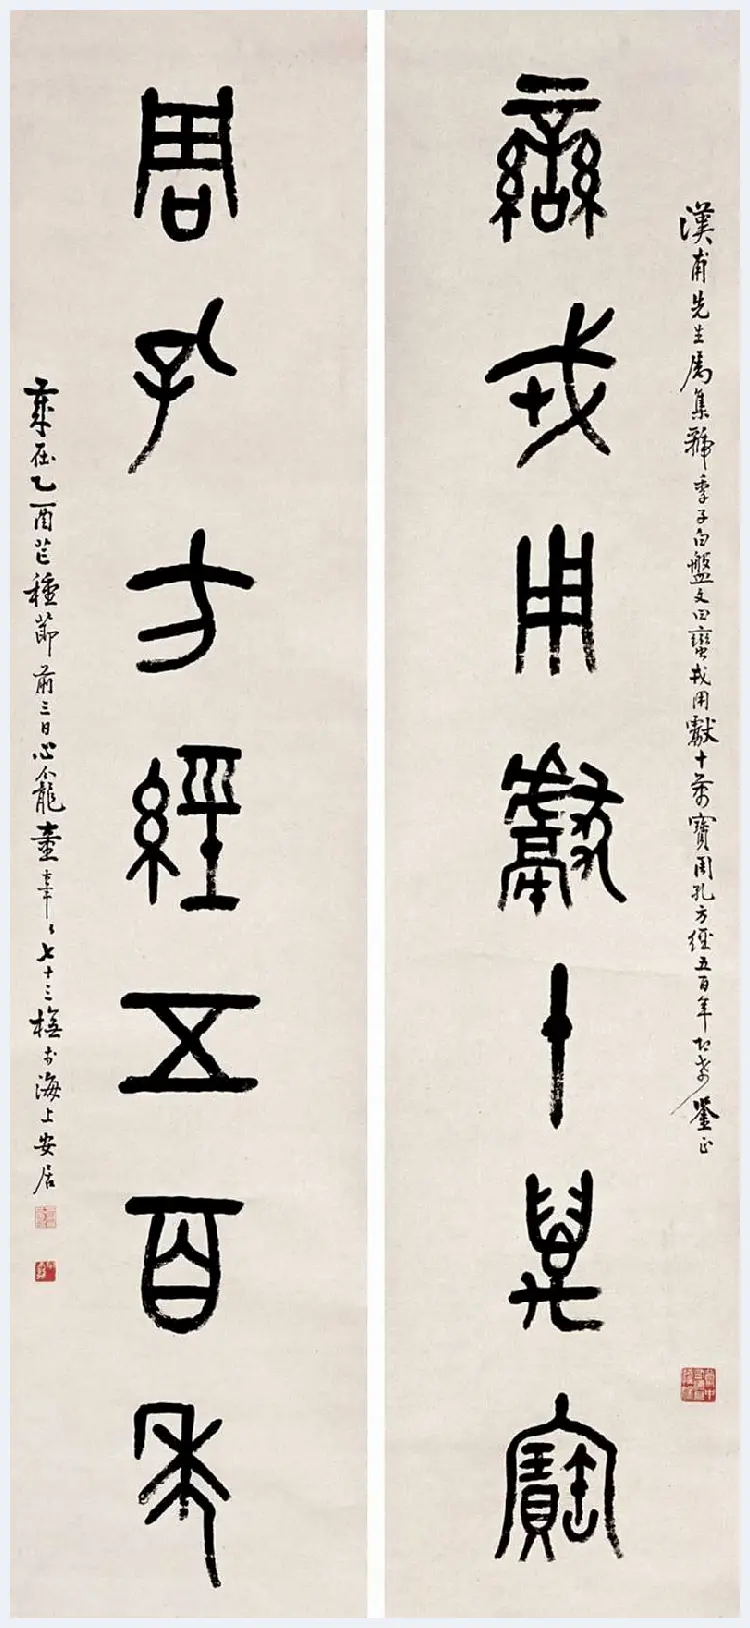 漢甫先生屬集虢季子白盤文曰蠻戎用獻十萬寶周孔方經五百年即希鑒正
䜌戎用獻十萬寶
周孔方經五百年
歲在乙酉芒種節前三日心龕童大年々七十三橅於海上安居